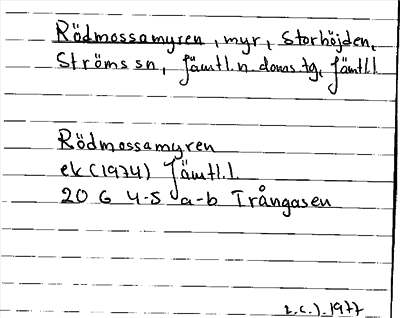 Rödmossamyren, myr, Storhöjden,
Ströms sn, Jämtl.n. doms.tg, Jämtl.l
Rödmossamyren
ek (1974) Jämtl.l.
20 G 4-5 a-b Trångåsen
1977